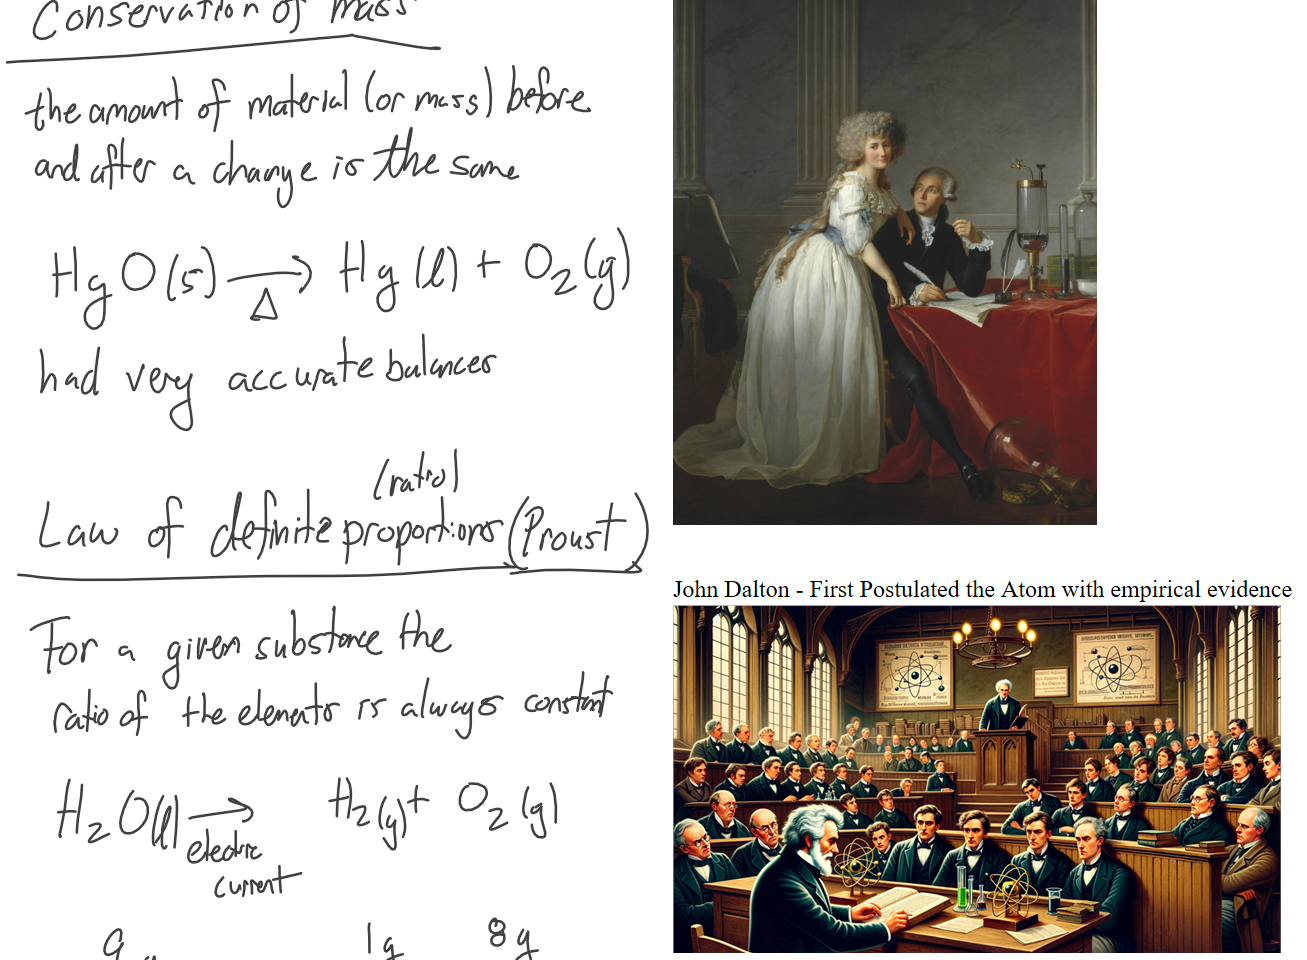 Conservation of mass
the amount of material (or mass) before
and after a change is the same
HgO(s) →
Δ
Hg(l) + O₂(g)
had very accurate balances
(ratio)
Law of definite proportions (Proust)
For a given substance the
ratio of the elements is always constant
H₂O(l) →
electric
current
H₂(g) + O₂(g)
9 g
1g
8g
John Dalton - First Postulated the Atom with empirical evidence